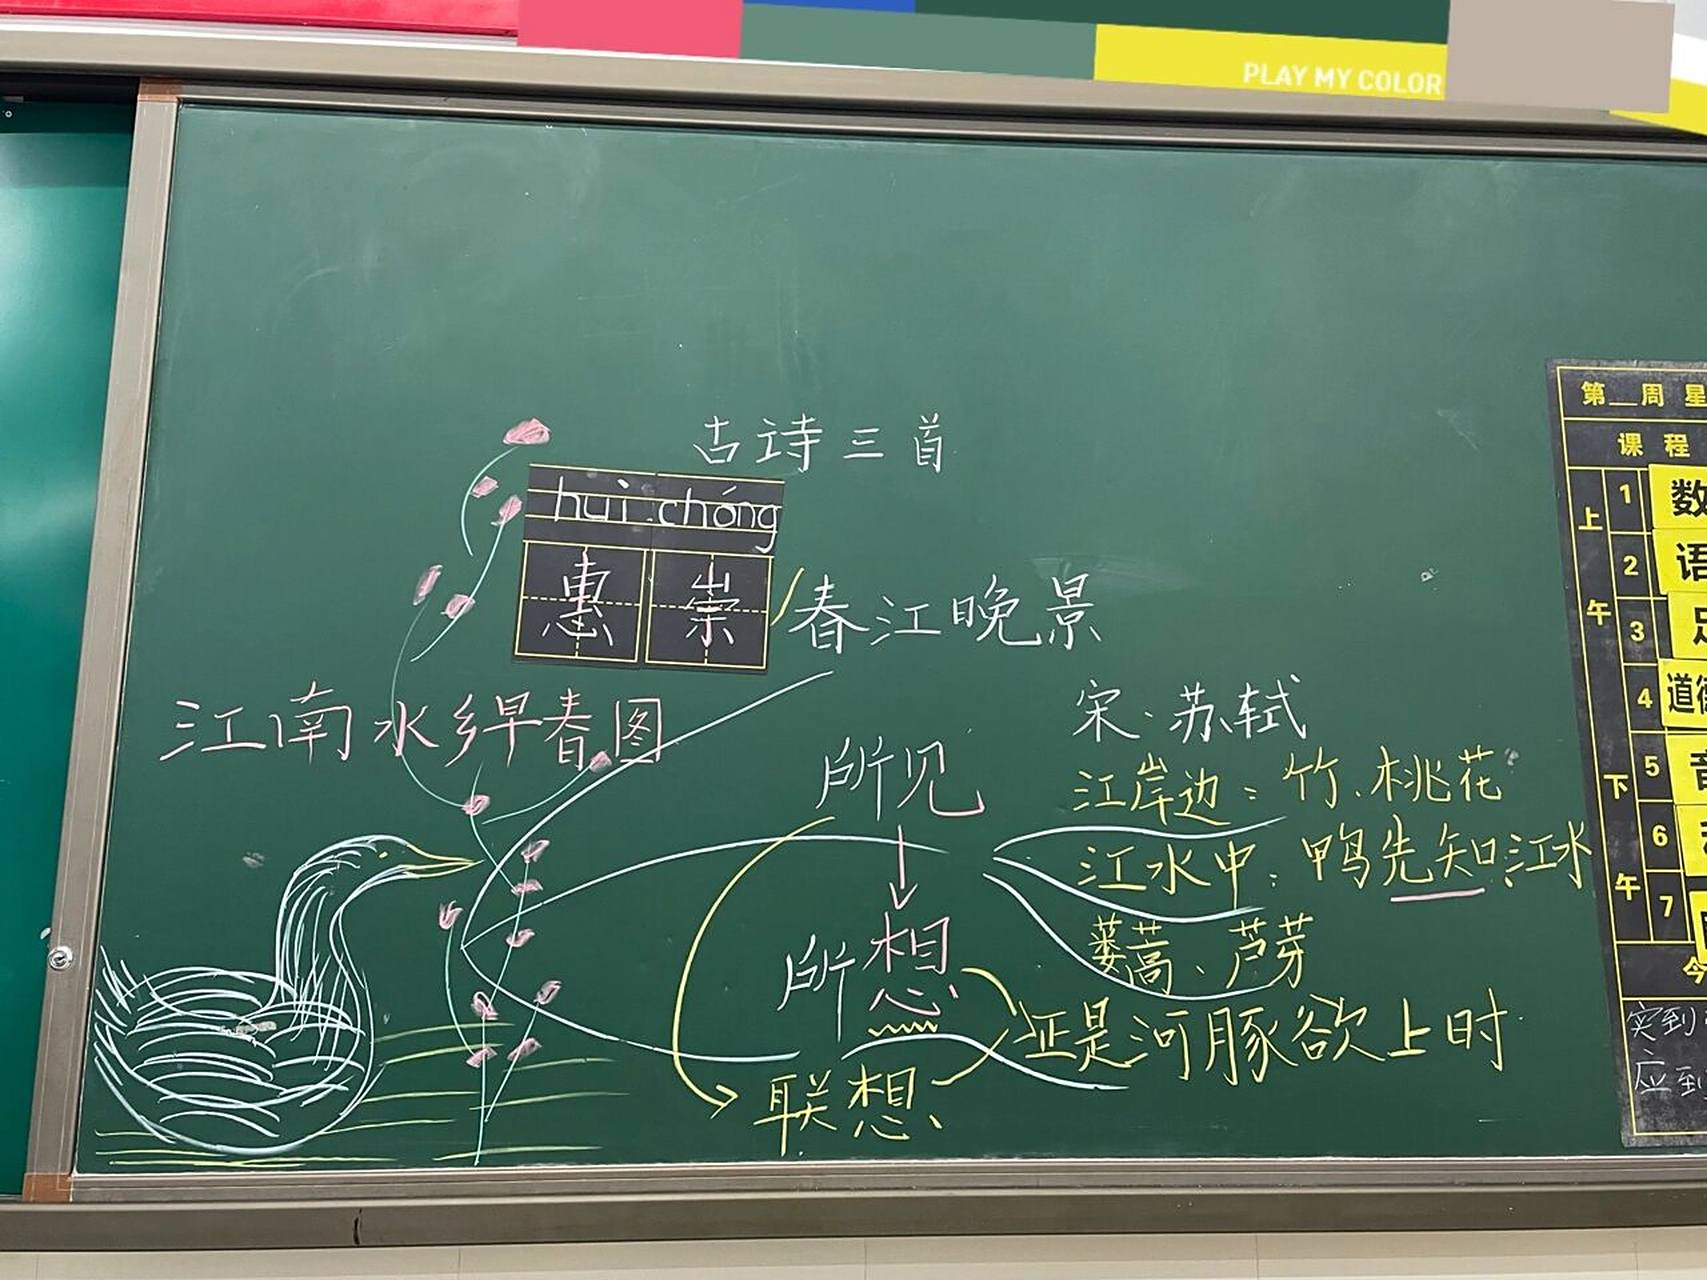 PLAY MY COLOR
古诗三首
huì chóng
惠崇春江晚景
宋·苏轼
江南水乡早春图
所见
江岸边：竹、桃花
江水中：鸭先知江水
蒌蒿、芦芽
所想
正是河豚欲上时
联想
第__周 星
课程
上午
1 数
2 语
3
4 道德
下午
5 音
6
7
今
实到
应到